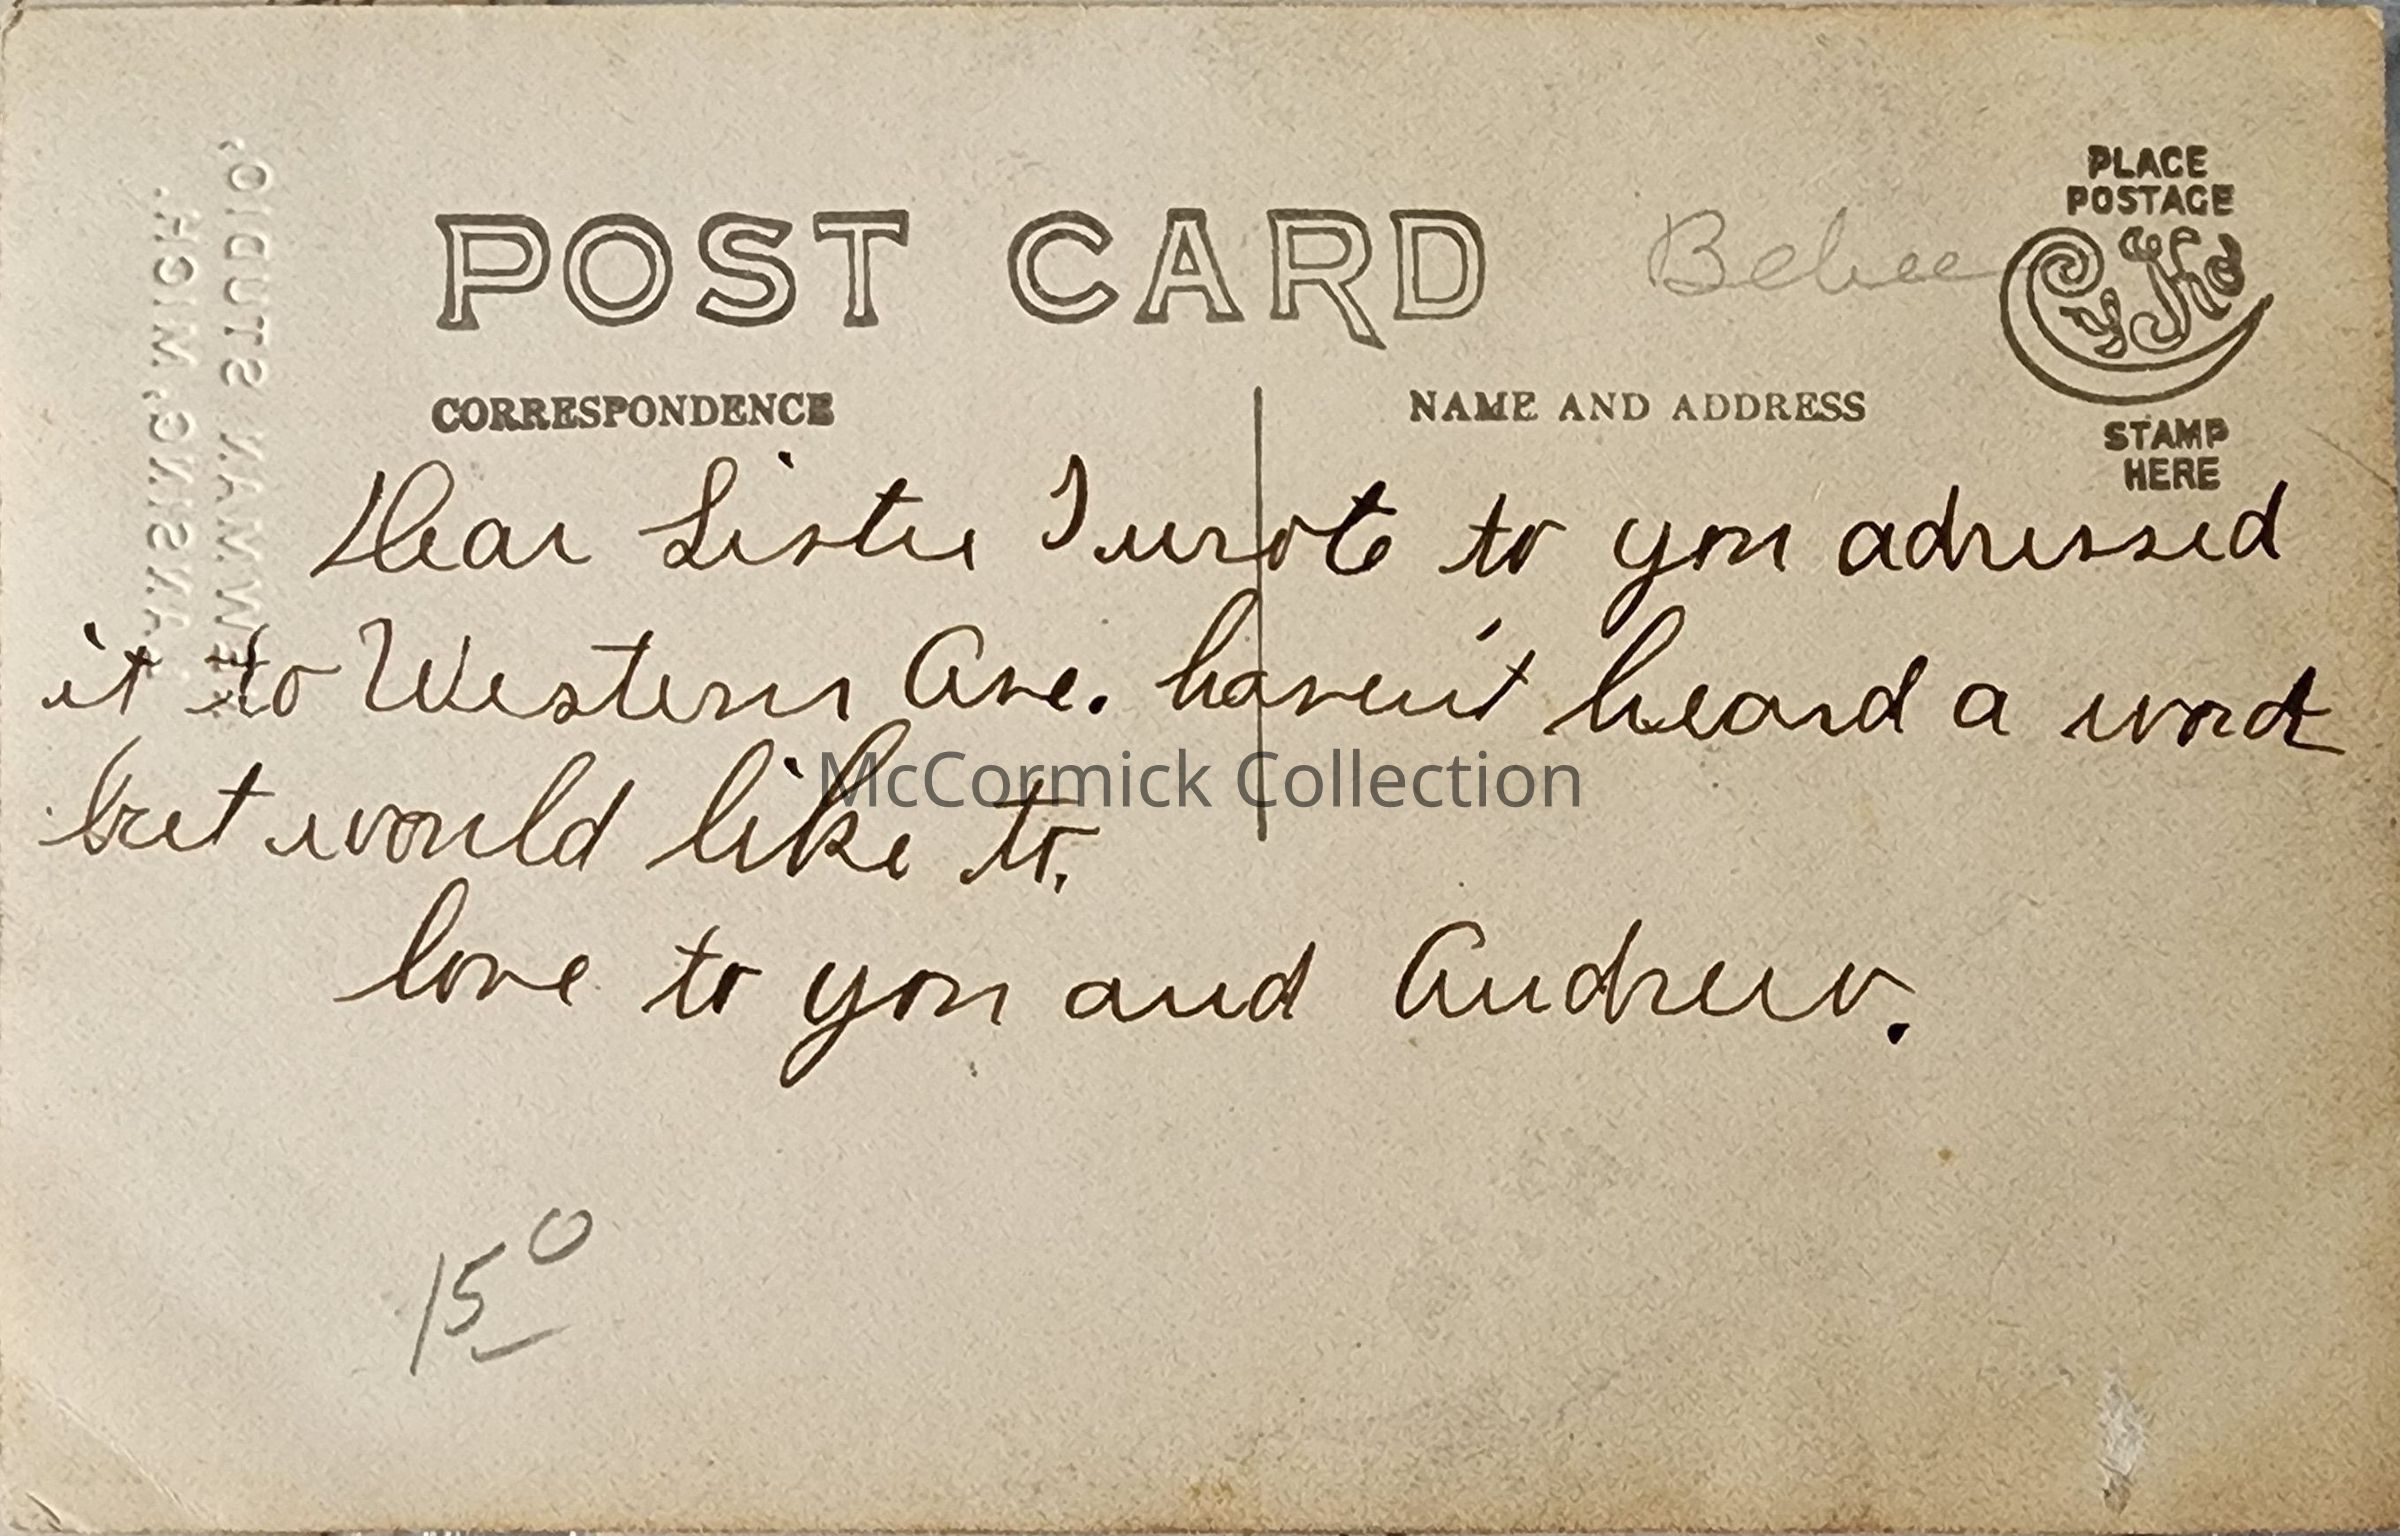 POST CARD
Bebee
PLACE
POSTAGE
CyKo
STAMP
HERE
CORRESPONDENCE
NAME AND ADDRESS
Dear Sister I wrote to you adressed
it to Western Ave. haven't heard a word
but would like to.
love to you and Andrew.
McCormick Collection
15 0
STUDIO,
LANSING, MICH.